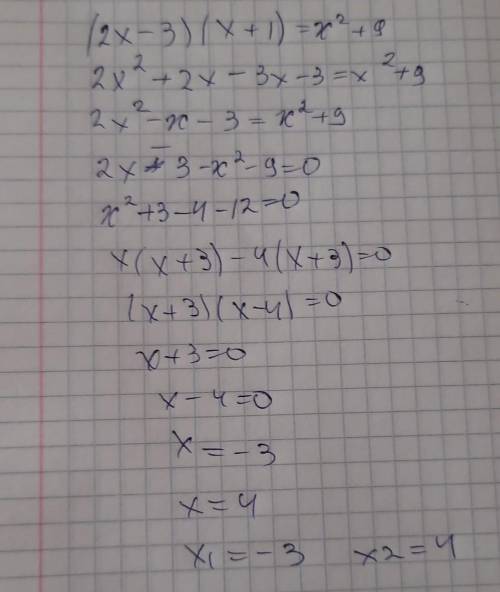 (2x-3)(x+1)=x²+9
2x²+2x-3x-3=x²+9
2x²-x-3=x²+9
2x-3-x²-9=0
x²+3-4-12=0
x(x+3)-4(x+3)=0
(x+3)(x-4)=0
x+3=0
x-4=0
x=-3
x=4
x1=-3 x2=4